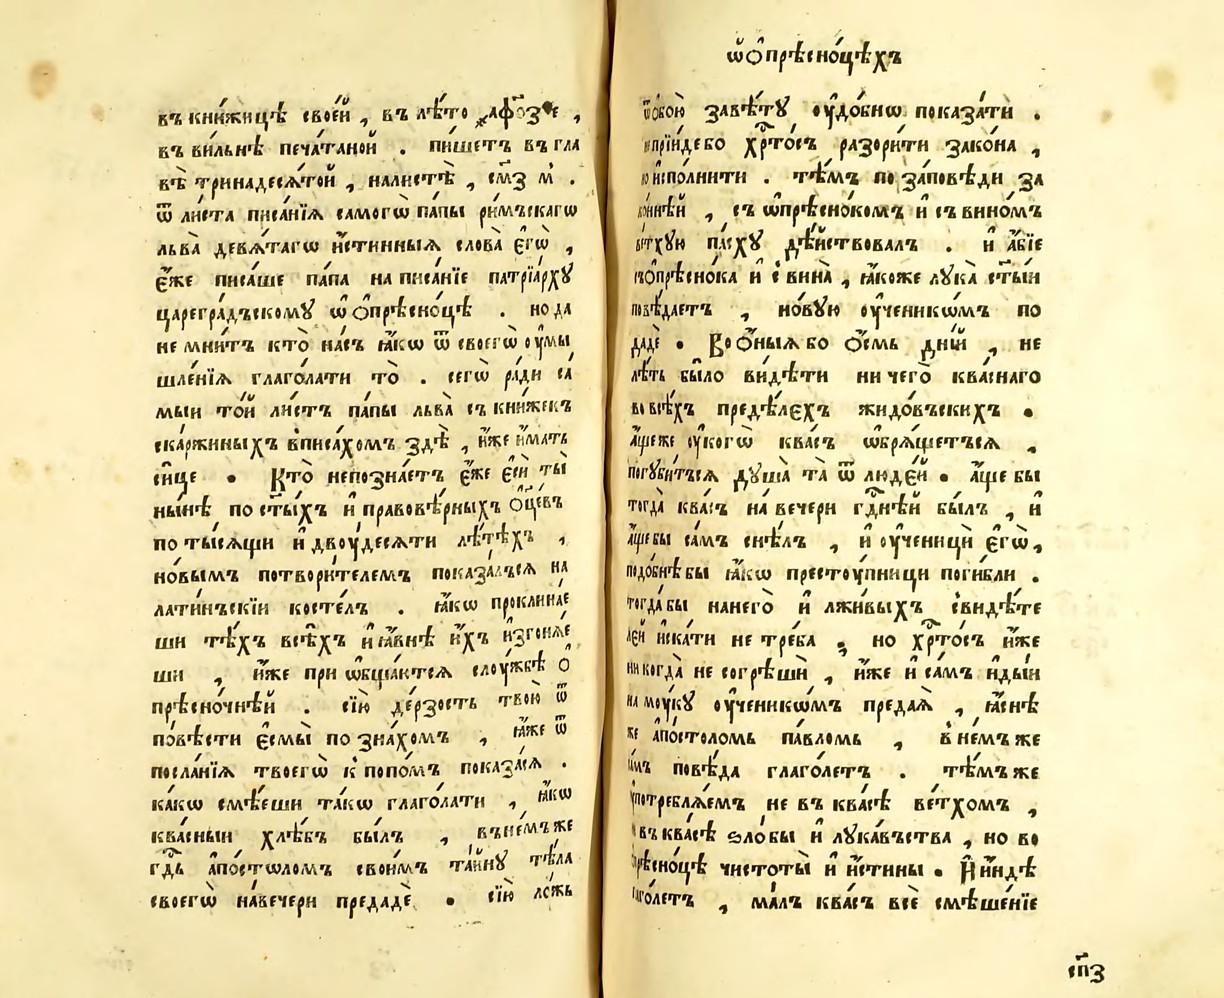 въ кни́жицѣ свое́й , въ лѣ́то ҂афо҃з
въ ви́льнѣ печа́таной . пи́шетъ въ гла
вѣ̀ тринадеся́той , на листѣ̀ , см҃з и҆ .
ѿ ли́ста писа́нїѧ самогѡ̀ па́пы ри́мъскагѡ
льва̀ девѧ́тагѡ и҆́стинныѧ слова̀ є҆гѡ̀ ,
є҆́же писа́ше па́па на писа́нїе патрїа́рху
цареградъскому ѡ҆ ѻ҆прѣсно́цѣ . но да
не мни́тъ кто̀ на́съ ꙗ҆́кѡ ѿ своегѡ̀ оу҆мы
шле́нїѧ глаго́лати то̀ . сегѡ̀ ра́ди са́
мыи то́й ли́стъ па́пы льва̀ съ кни́жекъ
ска́ржиныхъ вписа́хомъ здѣ̀ , и҆́же и҆́мать
си́це . Кто̀ непозна́етъ є҆́же є҆сѝ ты̀
ны́нѣ по ст҃ы́хъ и҆ правовѣ́рныхъ ѻ҆ц҃евъ
по ты́сѧщи и҆ двоу́десѧти лѣ́тѣхъ ,
но́вымъ потвори́телемъ показа́лъсѧ на
лати́нъскїи косте́лъ . ꙗ҆́кѡ проклина́е
ши тѣ́хъ всѣ́хъ и҆ ꙗ҆́внѣ и҆́хъ и҆згонѧ́е
ши , и҆́же при ѡ҆бща́ютсѧ слоу́жбѣ ѻ҆
прѣсно́чнѣй . сїю̀ де́рзость твою̀ ѿ
по́вѣсти є҆смы̀ позна́хомъ , ꙗ҆́же ѿ
посла́нїѧ твоегѡ̀ к попо́мъ показа́сѧ .
ка́кѡ смѣ́еши та́кѡ глаго́лати , ꙗ҆́кѡ
ква́сныи хлѣ́бъ бы́лъ , въ не́мъ же
гд҃ь а҆по́стѡломъ свои́мъ та́йну тѣ́ла
своегѡ̀ на ве́чери предадѐ . сїю̀ ло́жь
ѡ҆ ѻ҆прѣсно́цѣхъ
завѣ́ту оу҆до́бнѡ показа́ти .
прїи́де бо хр҃то́съ разори́ти зако́на ,
и҆спо́лнити . тѣ́мъ по за́повѣди за
ко́ннѣй , съ ѡ҆прѣсно́комъ и҆ съ вино́мъ
ве́тхую па́сху дѣ́йствовалъ . и҆ а҆́бїе
ѻ҆прѣсно́ка и҆ с вина̀ , ꙗ҆́коже лука̀ ст҃ы́й
повѣ́даетъ , но́вую оу҆ченикѡ́мъ по
дадѐ . Во ѻ҆́ныѧ бо ѻ҆́смь дні́й , не
лѣ́ть бы́ло ви́дѣти ничего̀ ква́снаго
во всѣ́хъ предѣ́лєхъ жидо́въскихъ .
а҆́ще же оу҆ когѡ̀ ква́съ ѡ҆брѧ́щетъсѧ ,
погуби́тъсѧ душа̀ та̀ ѿ люде́й . а҆́ще бы
тогда̀ ква́съ на ве́чери гд҃нѣй бы́лъ , и҆
а҆́ще бы са́мъ снѣ́лъ , и҆ оу҆ченицѝ є҆гѡ̀ ,
подо́бнѣ бы ꙗ҆́кѡ престоу́пници поги́бли .
тогда́ бы на него̀ и҆ лжи́выхъ свидѣ́те
лєй и҆ска́ти не тре́ба , но хр҃то́съ и҆́же
никогда̀ не согрѣшѝ , и҆́же и҆ са́мъ и҆ды́й
на мо́уку оу҆ченикѡ́мъ предаѧ̀ , ꙗ҆́снѣ
же а҆по́столомь па́вломь , в не́мъ же
повѣ́да глаго́летъ . тѣ́мъ же
употреблѧ́емъ не въ ква́сѣ ве́тхомъ ,
въ ква́сѣ ѕло́бы и҆ лука́въства , но во
чистоты̀ и҆ и҆́стины . И҆ и҆́ндѣ
глаго́летъ , ма́лъ ква́съ всѐ смѣше́нїе
сп҃з